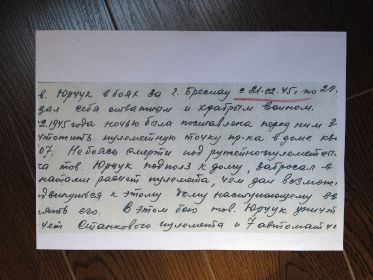 в. Юрчук в боях за г. Бреслау с 21.02.45г. по 20.
зал себя отважным и храбрым воином.
2.1945 года ночью была поставлена перед ним з
чтожить пулеметную точку пр-ка в доме кв
07. Не боясь смерти под ружейно-пулеметн
ка тов. Юрчук подполз к дому, забросал
натами расчет пулемета, чем дал возмож
двинуться к этому дому наступающему
нять его. В этом бою тов. Юрчук уничт
чет станкового пулемета и 7 автоматч